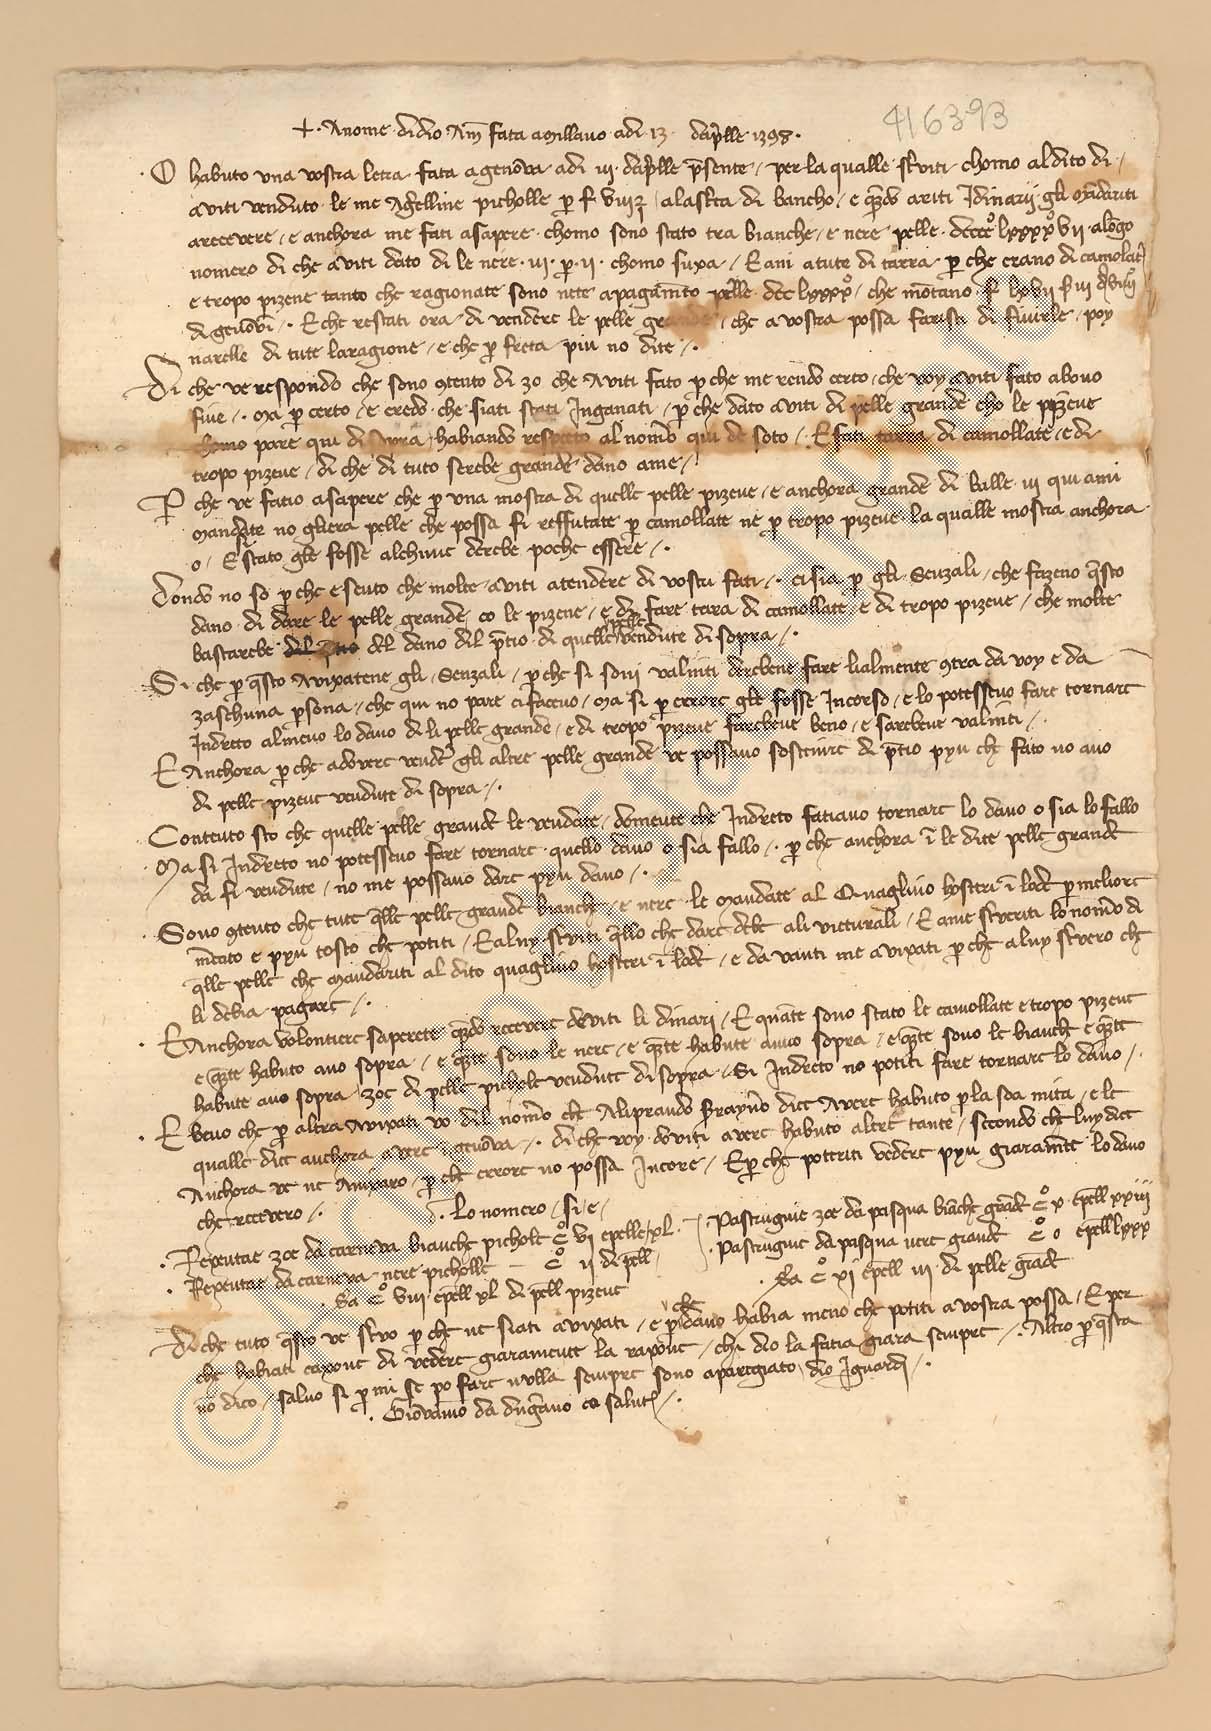 416393
+ · Anome didio Am̄ fata amillano adi 13 dap̄lle 1398 ·
O habuto vna vostra letra fata agenōva adi iii dap̄lle p̄sente / per la qualle sc̄viti chomo aldito di /
aviti venduto le me Aḡelline picholle p̄ f. / alasc̄ta di bancho / e q̄ndo ariti Idinarii gli mādariti
arecevere / e anchora me fati asapere chomo sono stato tra bianche / e nere pelle
nomero di che aviti dato di le nere iii p̄ ii chomo suxa / E ani atute di tarra p̄ che erano di camolate
e tropo pizene tanto che ragionate sono nete apagam̄to pelle / che mōtano
di genovī / · E che restati ora di vendere le pelle grande / che a vostra possa
narelle di tute laragione / e che p̄ freta piu no dite / ·
Di che ve respondo che sono ɔtento di zo che Aviti fato p̄ che me rendo certo / che voy aviti fato abono
fine / · Ma p̄ certo / e credo che siati stati Inganati / p̄ che dato aviti di pelle grande cho le pizene
chomo pare qui di sovra / habiando respeto al nom̄o qui de soto / · E fati tarra di camollate / e di
tropo pizene / di che di tuto serebe grande dano ame /
P che ve fatio asapere che p̄ una mostra di quelle pelle pizene / e anchora grande di balle iii qui ami
mandate no gliera pelle che possa si reffutate p̄ camollate ne p̄ tropo pizene la qualle mostra anchora
o / E si stato gle fosse alchune derebe poche essere / ·
Dondo no so p̄ che e seuto che molte aviti atendere di vostri fati / · ci sia p̄ gli Senzali / che fazeno q̄sto
dano di dare le pelle grande co le pizene / e di fare tara di camollate e di tropo pizene / che molte
bastarebe del dano dil p̄tio di quelle pelle vendute di sopra / ·
Si che p̄ q̄sto Avixatene gli Senzali / p̄ che si soni valinti derebene fare lialmente ɔtra da voy e da
zaschuna p̄sona / che qui no pare ci faceno / Ma si p̄ errore gle fosse Incorso / e lo potesseno fare tornare
Indreto almeno lo dano di li pelle grande / e di tropo pizene farebene beno / e sarebene valinti / ·
E Anchora p̄ che adovere vendē gli altre pelle grande ve possano sostenire di p̄tio pyu che fato no ano
di pelle pizene vendute di sopra / ·
Contento sto che quelle pelle grande le vendate / domente che Indreto fatiano tornare lo dano o sia lo fallo
· Ma si Indreto no potesseno fare tornare quello dano o sia fallo / · p̄ che anchora ī le dite pelle grande
da si vendute / no me possano dare pyu dano / ·
· Sono ɔtento che tute q̄lle pelle grande bianche / e nere le mandate al Quaglino hosteri ī lode p̄ meliore
m̄cato e pyu tosto che potiti / E aluy sc̄viti q̄llo che dare debe ali victurali / E ame sc̄veriti lo nom̄o di
q̄lle pelle che mandariti al dito quaglino hosteri ī lode / e da vanti me avixati p̄ che aluy sc̄vero che
li debia pagare / ·
· E Anchora volontere saperete q̄ndo recevere deviti li dinari / E quāte sono stato le camollate e tropo pizene
e q̄nte habuto ano sopra / e q̄nte sono le nere / e q̄nte habute anco sopra / e q̄nte sono le bianche e q̄nte
habute ano sopra zoe di pelle picholle vendute di sopra / Si Indreto no potiti fare tornare lo dano / ·
· E beno che p̄ altra Avixati vo dil nom̄o che Aliprando dice Avere habuto p̄ la soa mita / e le
qualle dice anchora avere ī genōva / · di che voy doviti avere habuto altre tante / secondo che luy dice
Anchora ve ne Avixaro / p̄ che errore no possa Incore / E p̄ che poteriti vedere pyu giaram̄te lo dano
che recevero / · · Lo nomero / si / e /
· Repentae zoe da carneva bianche picholle Cͦ vi e pelle xl · · Pastrugnie zoe da pasqua biāche grāde Cͦ x e pell xxiii
· Repentae da carneva nere picholle — Cͦ ii di pell · Pastrugnie da pasqua nere grande Cͦ o e pell lxxx
· Sa Cͦ viii e pell xl di pell pizene · Sa Cͦ xi e pell iii di pelle grāde
Di che tuto q̄sto ve sc̄vo p̄ che ne siati avixati / e p̄ che dano habia meno che potiti a vostra possa / E per
che habiati caxone di vedere giaramente la raxone / che dio la fatia giara sempre / · Altro p̄ q̄sta
no dico / salvo si p̄ mi se po fare nulla sempre sono aparegiato / dio Iguardi / ·
· Giovanno da dugnano co salute / ·